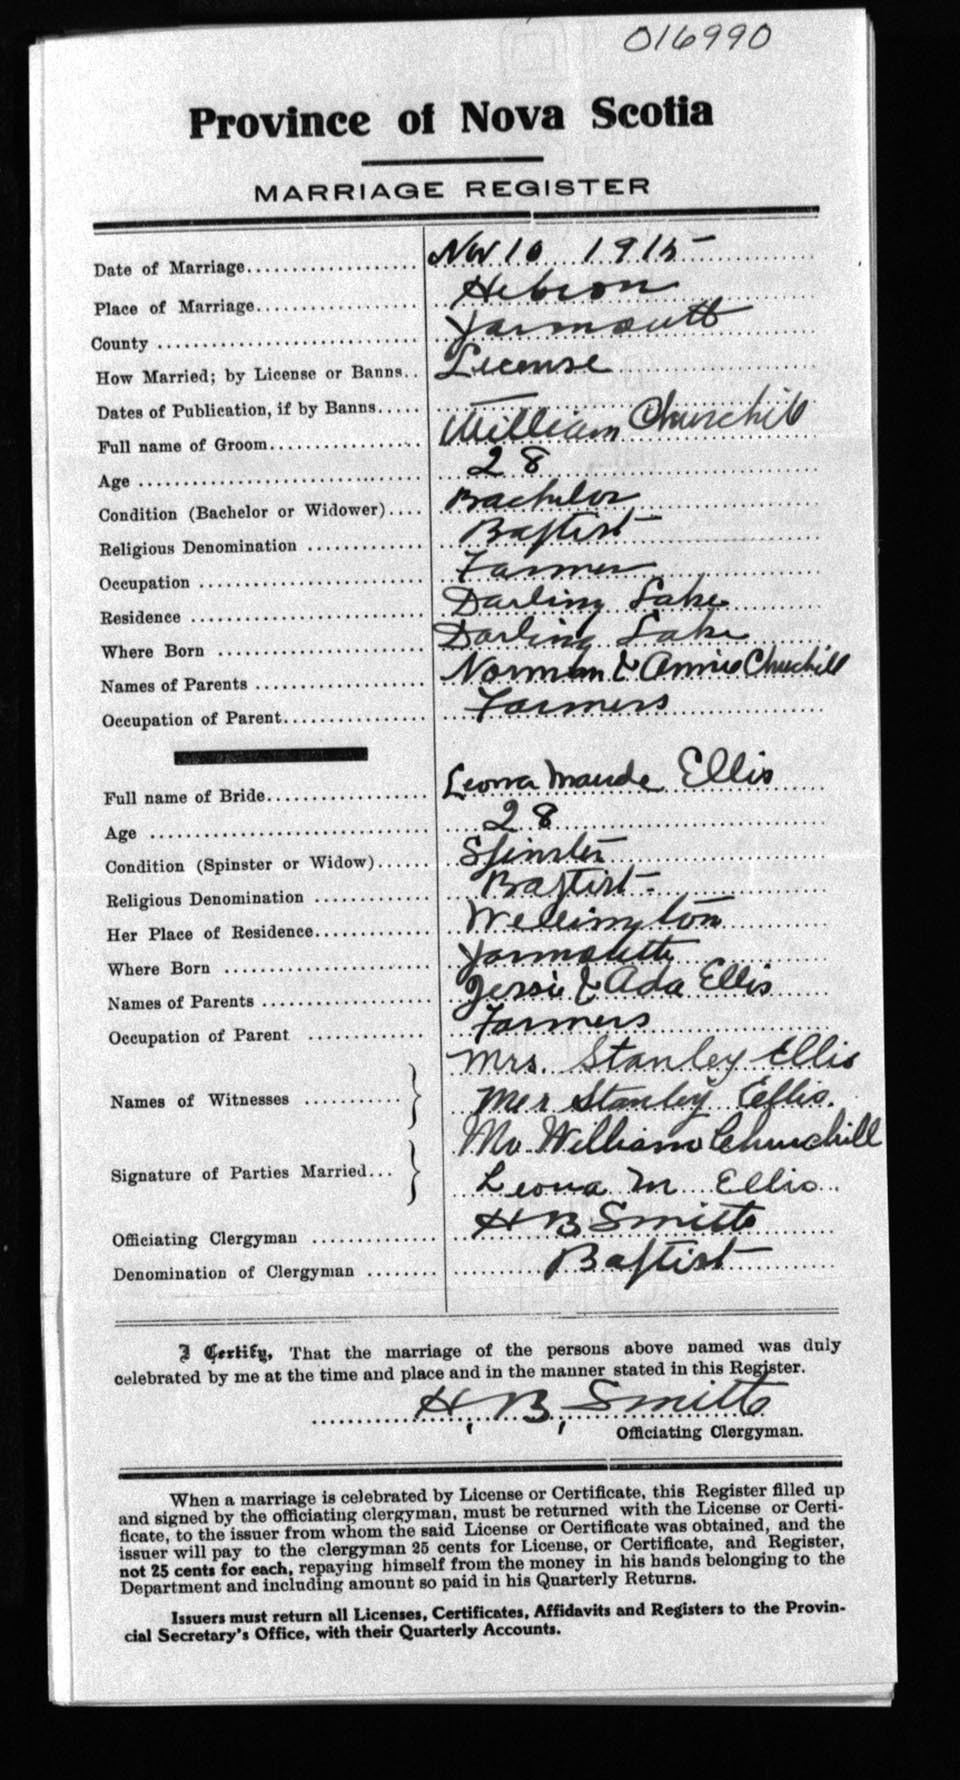 016990
Province of Nova Scotia
MARRIAGE REGISTER
Date of Marriage Nov 10 1915
Place of Marriage Hebron
County Yarmouth
How Married; by License or Banns License
Dates of Publication, if by Banns
Full name of Groom William Churchill
Age 28
Condition (Bachelor or Widower) Bachelor
Religious Denomination Baptist
Occupation Farmer
Residence Darling Lake
Where Born Darling Lake
Names of Parents Norman & Annie Churchill
Occupation of Parent Farmers
Full name of Bride Leona Maude Ellis
Age 28
Condition (Spinster or Widow) Spinster
Religious Denomination Baptist
Her Place of Residence Wellington
Where Born Yarmouth
Names of Parents Jessie & Ada Ellis
Occupation of Parent Farmers
Names of Witnesses Mrs. Stanley Ellis
Stanley Ellis.
Signature of Parties Married William Churchill
Leona M Ellis
Officiating Clergyman H B Smith
Denomination of Clergyman Baptist
I Certify, That the marriage of the persons above named was duly
celebrated by me at the time and place and in the manner stated in this Register.
H. B. Smith
Officiating Clergyman.
When a marriage is celebrated by License or Certificate, this Register filled up
and signed by the officiating clergyman, must be returned with the License or Certi-
ficate, to the issuer from whom the said License or Certificate was obtained, and the
issuer will pay to the clergyman 25 cents for License, or Certificate, and Register,
not 25 cents for each, repaying himself from the money in his hands belonging to the
Department and including amount so paid in his Quarterly Returns.
Issuers must return all Licenses, Certificates, Affidavits and Registers to the Provin-
cial Secretary's Office, with their Quarterly Accounts.